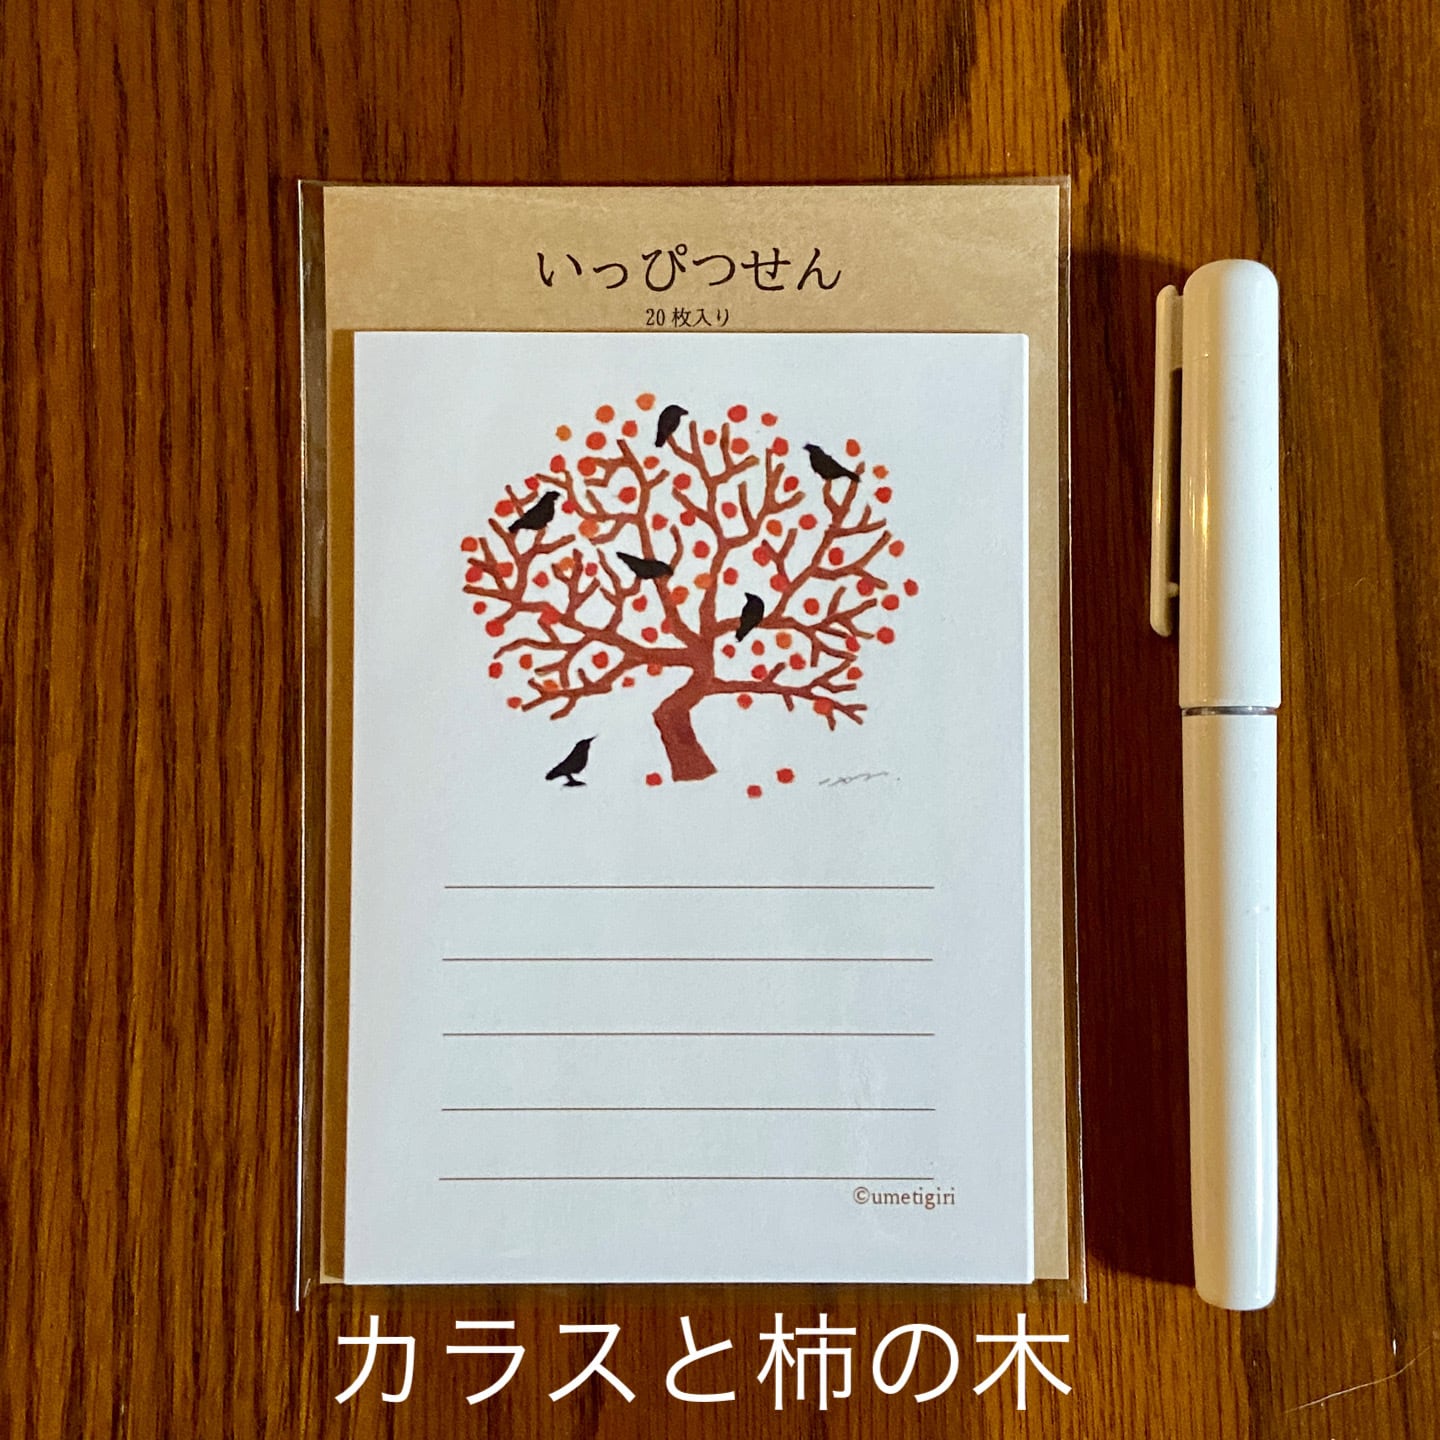 いっぴつせん
20枚入り
©umetigiri
カラスと柿の木